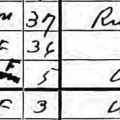 m 37 Ru
F 36
F 5
F 3